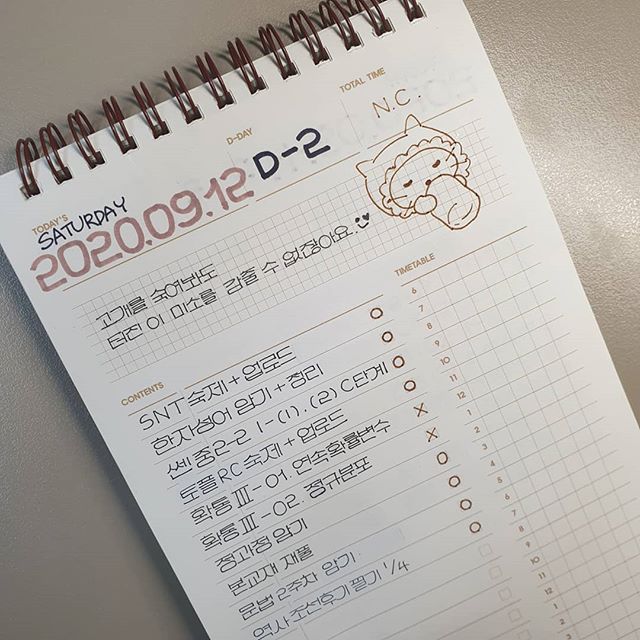 TODAY'S
SATURDAY
2020.09.12
D-DAY
D-2
TOTAL TIME
N.C.
고개를 숙여봐도
터진 이 미소를 감출 수 없잖아요.
CONTENTS
SNT 숙제 + 업로드 O
한자성어 암기 + 정리 O
쎈 중2-2 1-(1), (2) C단계 O
토플 RC 숙제 + 업로드 O
확통 III - 01. 연속확률변수 X
확통 III - 02. 정규분포 X
정과정 암기 O
본교재 재풀 O
문법 2주차 암기 O
역사 조선후기 필기 1/4 O
TIMETABLE
6
7
8
9
10
11
12
1
2
3
4
5
6
7
8
9
10
11
12